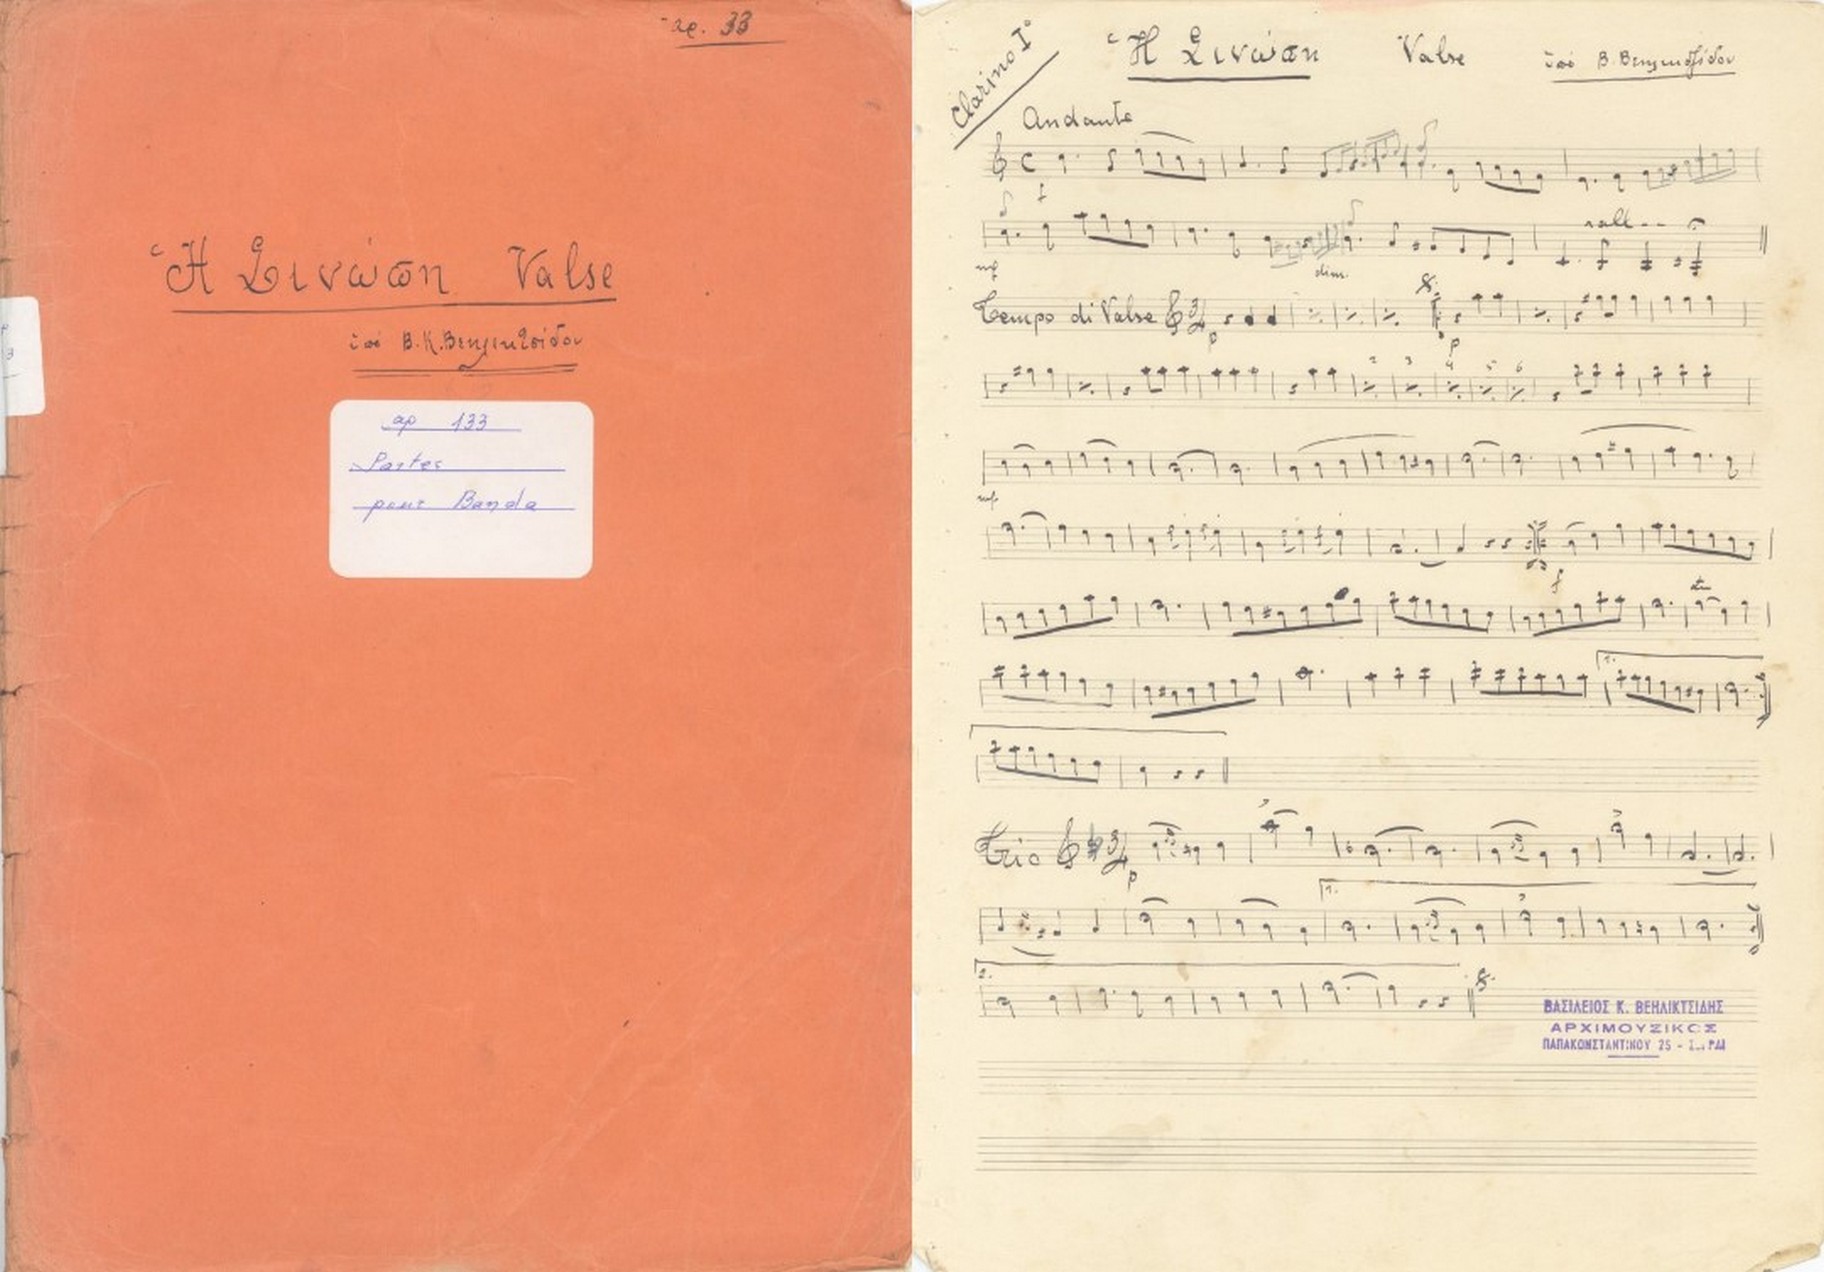 αρ. 33
Ἡ Σινώπη Valse
ὑπό Β.Κ.Βεηλικτσίδου
αρ 133
Partes
pour Banda
Clarino Iº
Ἡ Σινώπη Valse ὑπό Β.Βεηλικτζίδου
Andante
f
rall--
mf dim.
Tempo di Valse 3/4 p p
2 3 4 5 6
mf
f
tr
1.
Trio 3/4 p
1.
2.
ΒΑΣΙΛΕΙΟΣ Κ. ΒΕΗΛΙΚΤΣΙΔΗΣ
ΑΡΧΙΜΟΥΣΙΚΟΣ
ΠΑΠΑΚΩΝΣΤΑΝΤΙΝΟΥ 25 -